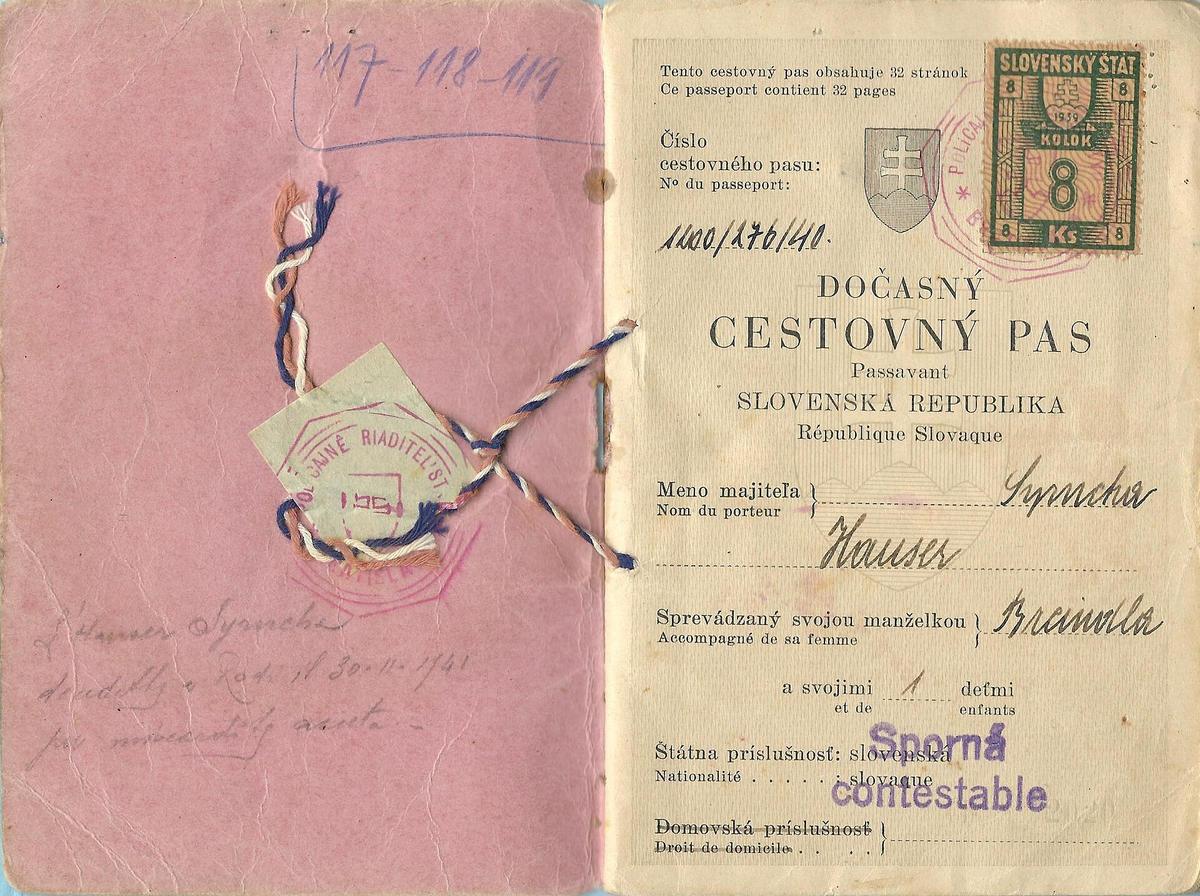 117-118-119
POLICAJNÉ RIADITEĽST
Hauser Symcha
30.11.1941
Tento cestovný pas obsahuje 32 stránok
Ce passeport contient 32 pages
SLOVENSKÝ ŠTÁT
8 8
1939
KOLOK
8
8 Ks 8
Číslo
cestovného pasu:
Nº du passeport:
1200/276/40.
DOČASNÝ
CESTOVNÝ PAS
Passavant
SLOVENSKÁ REPUBLIKA
République Slovaque
Meno majiteľa } Symcha
Nom du porteur
Hauser
Sprevádzaný svojou manželkou } Breindla
Accompagné de sa femme
a svojimi 1 deťmi
et de enfants
Štátna príslušnosť: slovenská
Sporná
Nationalité . . . . . : slovaque
contestable
Domovská príslušnosť }
Droit de domicile . . . . .